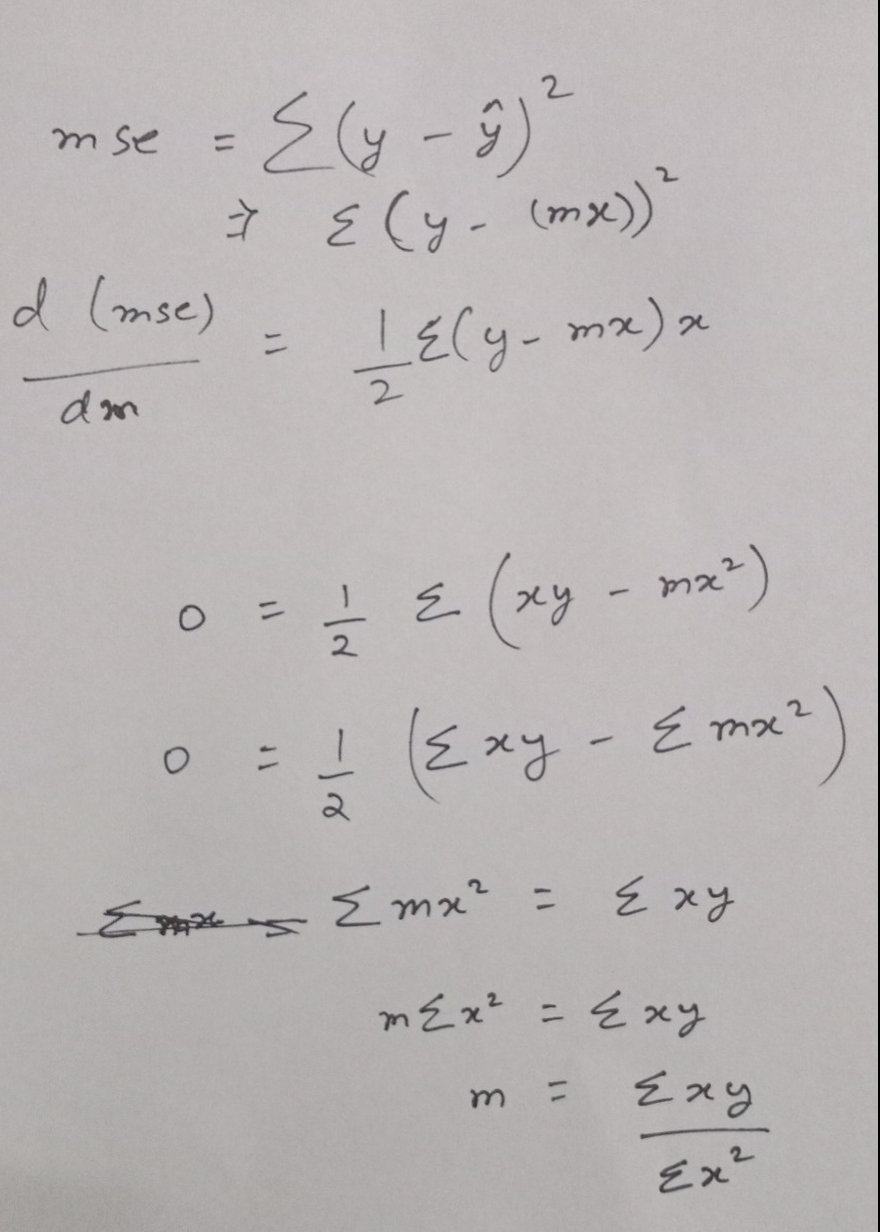 mse = Σ(y - ŷ)²
⇒ Σ(y - (mx))²
d (mse)/dm = 1/2 Σ(y - mx)x
0 = 1/2 Σ(xy - mx²)
0 = 1/2 (Σxy - Σmx²)
Σmx² = Σxy
mΣx² = Σxy
m = Σxy/Σx²